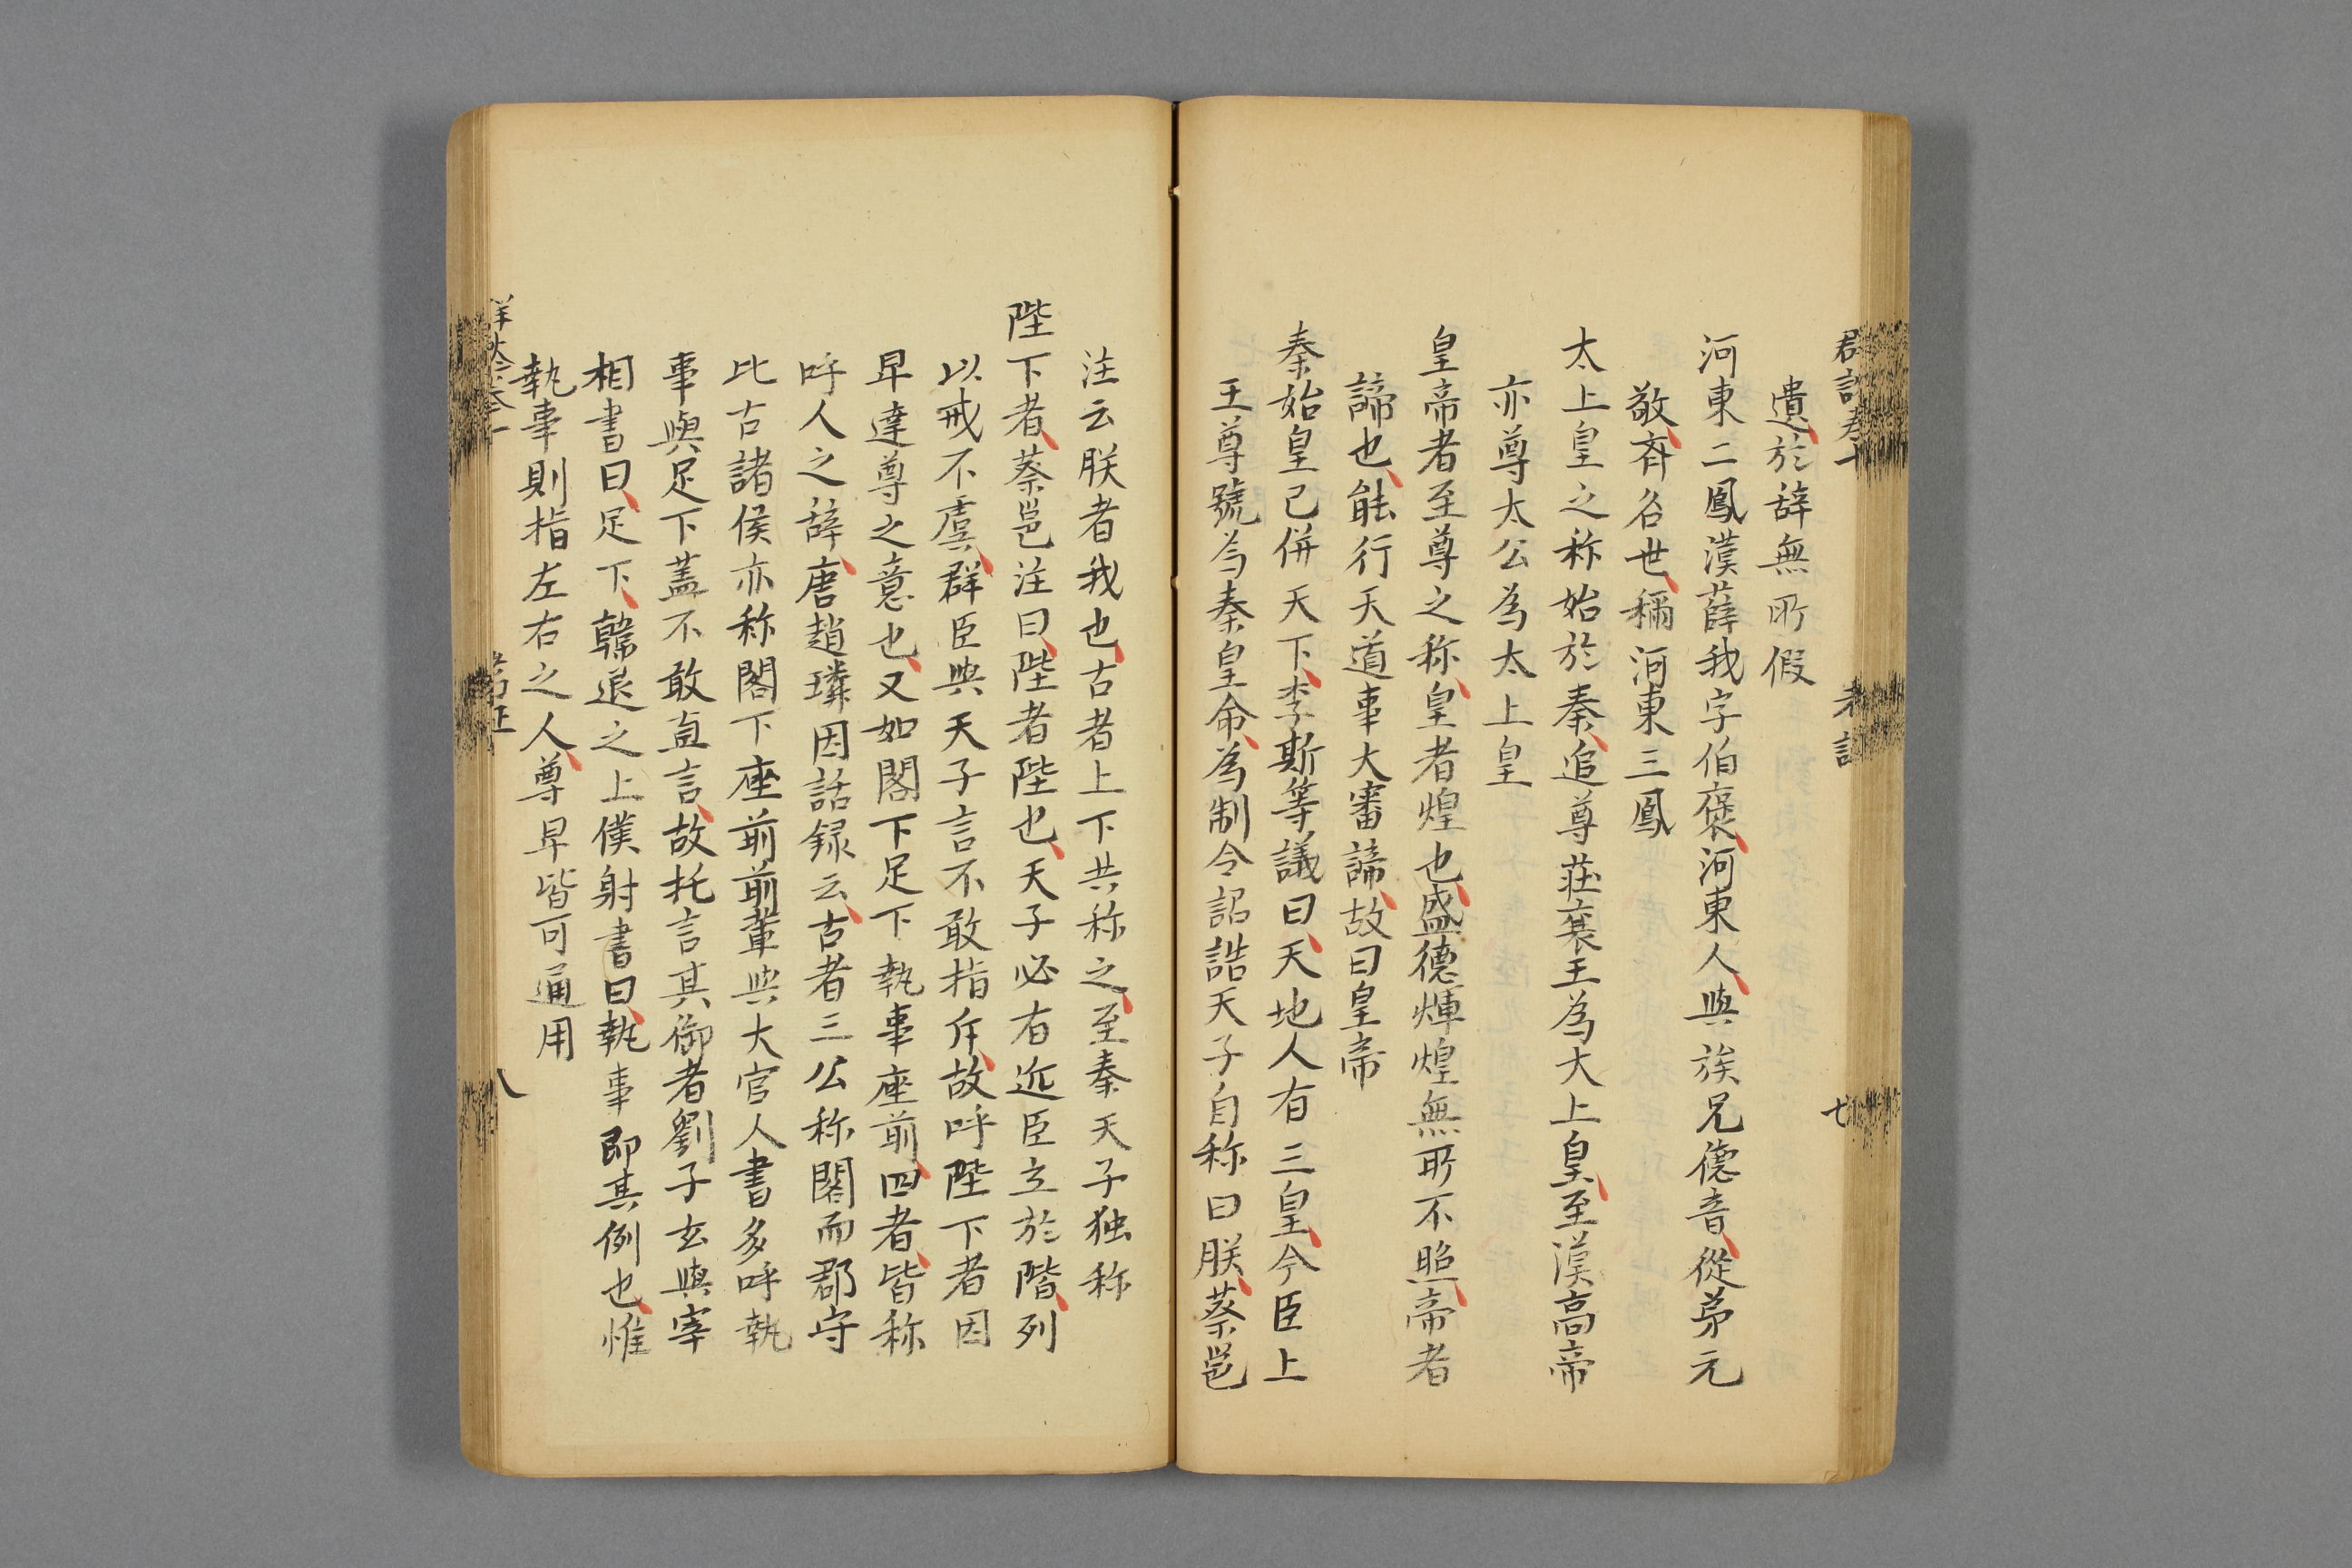 遺於辞無所假
河東二鳳漢薛我字伯褒河東人與族兄德音從弟元
敬齊名世稱河東三鳳
太上皇之称始於秦追尊莊襄王為大上皇至漢高帝
亦尊太公為太上皇
皇帝者至尊之称皇者煌也盛德煇煌無所不照帝者
諦也能行天道事大審諦故曰皇帝
秦始皇已併天下李斯等議曰天地人有三皇今臣上
王尊號為秦皇命為制令詔誥天子自称曰朕蔡邕
注云朕者我也古者上下共称之至秦天子独称
陛下者蔡邕注曰陛者陛也天子必有近臣立於階列
以戒不虞群臣與天子言不敢指斥故呼陛下者因
早達尊之意也又如閣下足下執事座前四者皆称
呼人之辞唐趙璘因話録云古者三公称閣而郡守
比古諸侯亦称閣下座前前輩與大官人書多呼執
事與足下蓋不敢直言故托言其御者劉子玄與宰
相書曰足下韓退之上僕射書曰執事即其例也惟
執事則指左右之人尊早皆可通用
八